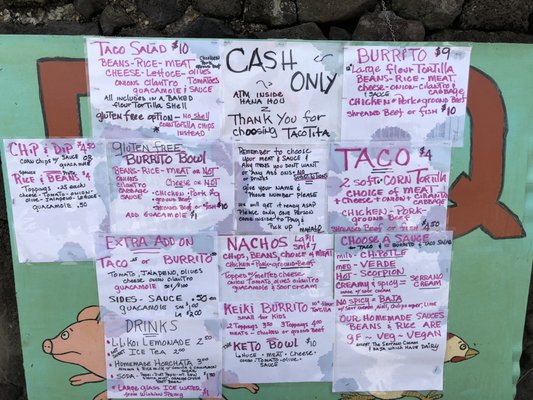 TACO SALAD $10
BEANS-RICE-MEAT
CHEESE-LETTUCE-OLIVES
ONIONS CILANTRO TOMATOES
GUACAMOLE AND SAUCE
ALL INCLUDED IN A BAKED
FLOUR TORTILLA SHELL
GLUTEN FREE OPTION - NO SHELL
CORN TORTILLA CHIPS
INSTEAD
CASH ONLY
ATM INSIDE
HANA HOU
THANK YOU FOR
CHOOSING TACOTITA
BURRITO $9
LARGE FLOUR TORTILLA
BEANS-RICE-MEAT
CHEESE-ONION-CILANTRO
& SAUCE CABBAGE
CHICKEN-PORK-GROUND BEEF
SHREDDED BEEF OR FISH $10
CHIP & DIP $4.50
CORN CHIPS W/ SAUCE OR
GUACAMOLE
RICE & BEANS $4
TOPPINGS .25 EACH
CHEESE-TOMATO-ONION
OLIVE-JALAPENO-LETTUCE
GUACAMOLE .50
GLUTEN FREE
BURRITO BOWL
BEANS-RICE-MEAT
ONIONS CHEESE OR NOT
CILANTRO
CABBAGE
SAUCE
CHICKEN OR PORK
GROUND BEEF
OR FISH $10
ADD GUACAMOLE $1
REMEMBER TO CHOOSE
YOUR MEAT & SAUCE
ANY ITEMS YOU DON'T WANT
OR ANY ADD ONS - NO
GIVE YOUR NAME &
PHONE NUMBER PLEASE
WE WILL GET IT READY ASAP
PLEASE ONLY ONE PERSON
COME INSIDE TO PAY &
PICK UP MAHALO
TACO $4
2 SOFT-CORN TORTILLA
CHOICE OF MEAT
+ CHEESE + ONION + CILANTRO
CABBAGE
CHICKEN-PORK-
GROUND BEEF
SHREDDED BEEF OR FISH $4.50
EXTRA ADD ON
TACO OR BURRITO
TOMATO, JALAPENO, OLIVES
CHEESE ONION CILANTRO
GUACAMOLE
SIDES - SAUCE .50
GUACAMOLE SM $1.00
LG $2.00
DRINKS
LILIKOI LEMONADE 2.50
ICE TEA 2.50
HOMEMADE HORCHATA 3.50
SODA
LARGE GLASS ICE WATER
NACHOS
CHIPS, BEANS, CHOICE OF MEAT
CHICKEN-PORK-GROUND BEEF
TOPPED W/ MELTED CHEESE
TOMATO ONION CILANTRO OLIVES
GUACAMOLE & SOUR CREAM
KEIKI BURRITO
SMALL FOR KIDS
2 TOPPINGS $3.50 3 TOPPINGS 4.00
MEATS - CHICKEN OR GROUND BEEF
KETO BOWL $10
LETTUCE-MEAT-CHEESE-
ONION-CILANTRO
SAUCE
CHOOSE A SAUCE
ON TACO & BURRITO & TACO SALAD
MILD - CHIPOTLE
MED - VERDE
HOT - SCORPION
CREAMY & SPICY = SERRANO
CREAM
NO SPICY = BAJA
OUR HOMEMADE SAUCES
BEANS & RICE ARE
GF - VEG - VEGAN
EXCEPT THE SERRANO CREAM
& BAJA WHICH HAVE DAIRY